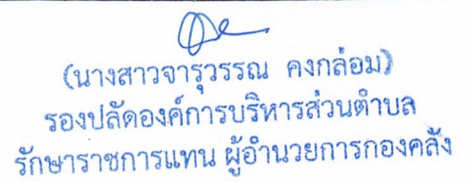 (นางสาวจารุวรรณ คงกล่อม)
รองปลัดองค์การบริหารส่วนตำบล
รักษาราชการแทน ผู้อำนวยการกองคลัง